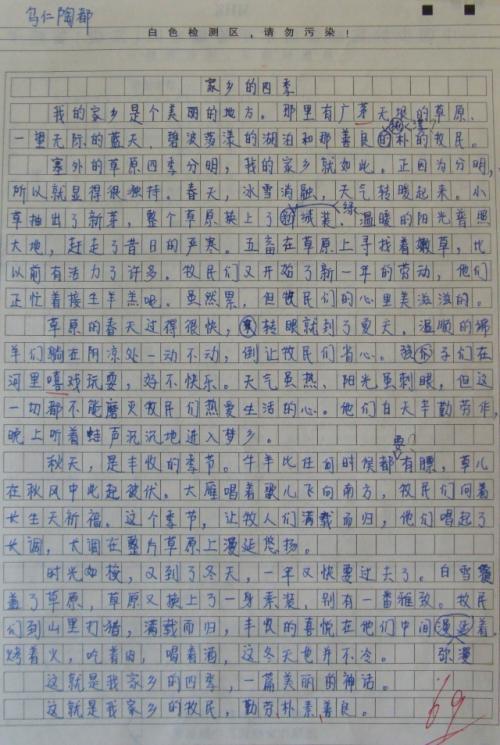 乌仁陶都
白色检测区,请勿污染!
家乡的四季
我的家乡是个美丽的地方。那里有广茅天垠的草原、
一望无际的蓝天、碧波荡漾的湖泊和那善良的朴的牧民。
塞外的草原四季分明,我的家乡就如此。正因为分明,
所以就显得很独特。春天,冰雪消融,天气转暖起来。小
绿
草抽出了新芽,整个草原换上了的绒装。温暖的阳光普照
大地,赶走了昔日的严寒。五畜在草原上寻找着嫩草,比
以前有活力了许多。牧民们又开始了新一年的劳动,他们
正忙着接生羊羔呢。虽然累,但牧民们的心里美滋滋的。
草原的春天过得很快,转眼就到了夏天。温顺的绵
羊们躺在阴凉处一动不动,倒让牧民们省心。孩子们在
河里嘻戏玩耍,好不快乐。天气虽热、阳光虽刺眼,但这
一切都不能磨灭牧民们热爱生活的心。他们白天辛勤劳作,
晚上听着蛙声沉沉地进入梦乡。
要
秋天,是丰收的季节。牛羊比任何时候都有膘,草儿
在秋风中此起彼伏。大雁唱着歌儿飞向南方,牧民们向着
长生天祈福。这个季节,让牧人们满载而归,他们唱起了
长调,大调在整片草原上漫延悠扬。
时光如梭,又到了冬天,一年又快要过去了。白雪覆
盖了草原,草原又换上了一身素装,别有一番雅致。牧民
们到山里打猎,满载而归,丰收的喜悦在他们中间漫延着。
烤着火,吃着肉,喝着酒,这冬天也并不冷。
弥漫
这就是我家乡的四季,一篇美丽的神话。
这就是我家乡的牧民,勤劳、朴素、善良。
69